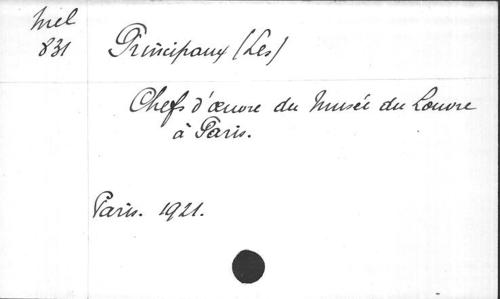 Miel
831
Principaux (Les)
Chefs d'œuvre du Musée du Louvre
à Paris.
Paris. 1921.